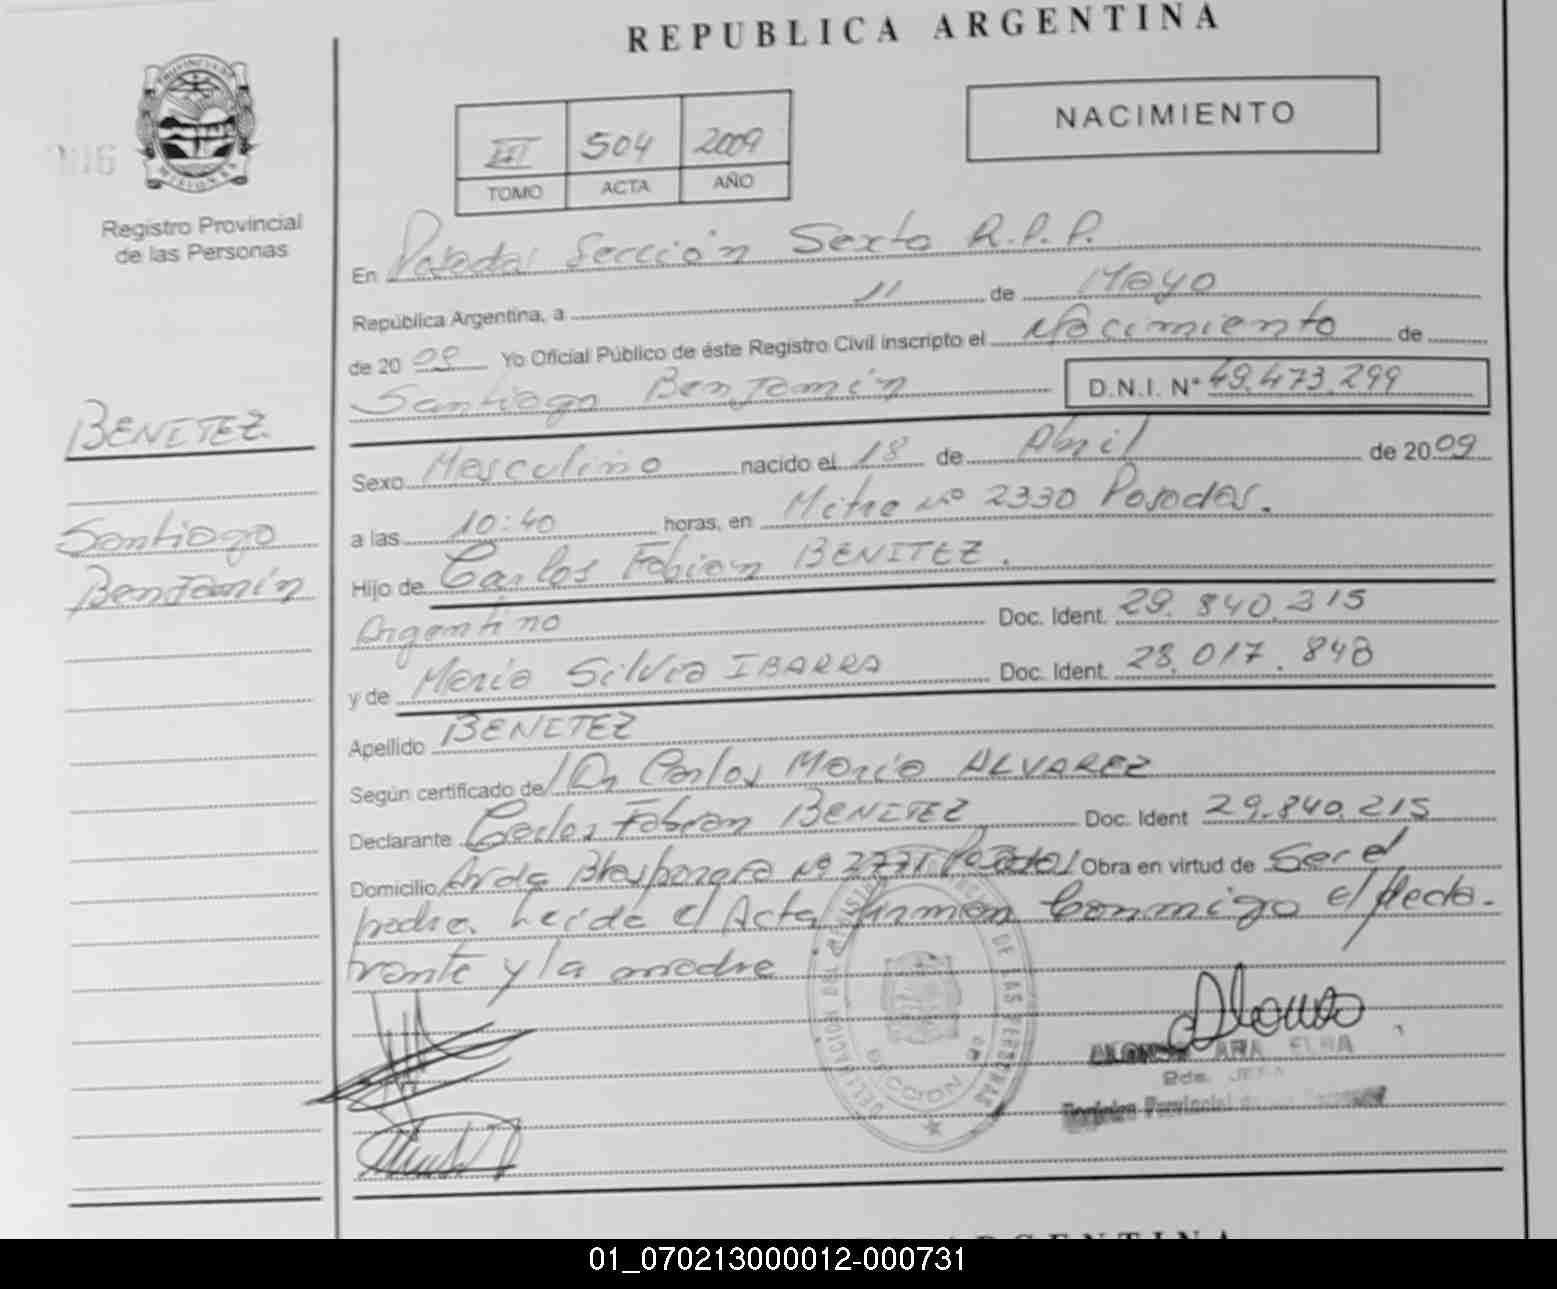 REPUBLICA ARGENTINA
PROVINCIA DE MISIONES
Registro Provincial
de las Personas
III 504 2009
TOMO ACTA AÑO
NACIMIENTO
En Posadas Sección Sexta R.P.P.
República Argentina, a 11 de Mayo
de 2009 Yo Oficial Público de éste Registro Civil inscripto el Nacimiento de
Santiago Benjamín D.N.I. N° 49.473.299
BENITEZ
Santiago
Benjamín
Sexo Masculino nacido el 18 de Abril de 2009
a las 10:40 horas, en Mitre Nº 2330 Posadas.
Hijo de Carlos Fabian BENITEZ.
Argentino Doc. Ident. 29.840.315
y de Maria Silvia IBARRA Doc. Ident. 28.017.848
Apellido BENITEZ
Según certificado de Dr Carlos Mario ALVAREZ
Declarante Carlos Fabian BENITEZ Doc. Ident 29.840.215
Domicilio Nº 2771 Posadas Obra en virtud de Ser el
padre. Leida el Acta firman Conmigo el Decla-
rante y la madre
DELEGACION DEL REGISTRO DE LAS PERSONAS
SECCION
Alonso
ALONSO ANA ELBA
Registro Provincial de las Personas
ARGENTINA
01_070213000012-000731